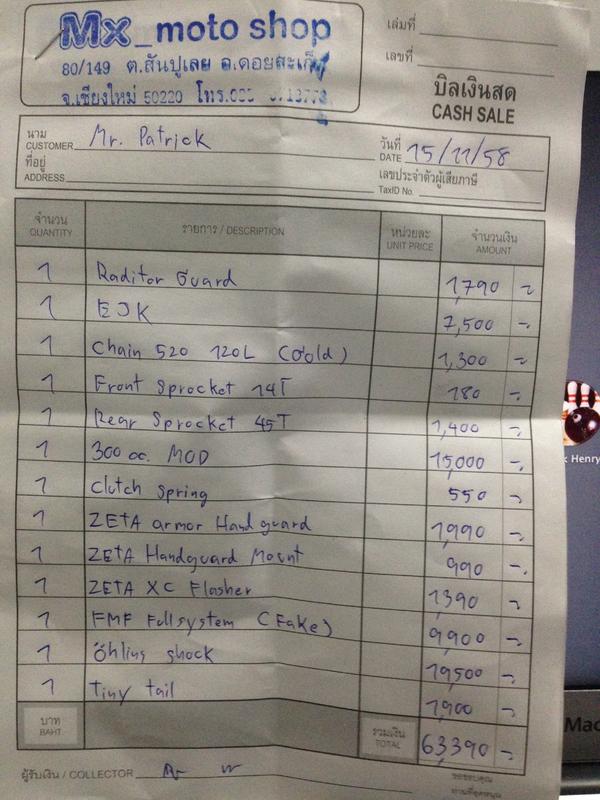 Mx_moto shop
80/149 ต.สันปูเลย อ.ดอยสะเก็ด
จ.เชียงใหม่ 50220 โทร.
เล่มที่
เลขที่
บิลเงินสด
CASH SALE
นาม
CUSTOMER Mr. Patrick
วันที่
DATE 15/11/58
ที่อยู่
ADDRESS
เลขประจำตัวผู้เสียภาษี
TaxID No.
จำนวน รายการ / DESCRIPTION หน่วยละ จำนวนเงิน
QUANTITY UNIT PRICE AMOUNT
1 Raditor Guard 1,790 -
1 EJK 7,500 -
1 Chain 520 120L (Gold) 1,300 -
1 Front Sprocket 14T 180 -
1 Rear Sprocket 45T 1,400 -
1 300 cc. MOD 15,000 -
1 Clutch Spring 550 -
1 ZETA armor Handguard 1,990 -
1 ZETA Handguard Mount 990 -
1 ZETA XC Flasher 1,390 -
1 FMF Fullsystem (Fake) 9,900 -
1 Öhlins shock 19,500 -
1 Tiny tail 1,900 -
บาท
BAHT
รวมเงิน
TOTAL 63,390 -
ผู้รับเงิน / COLLECTOR
ขอขอบคุณ
ท่านที่อุดหนุน
k Henry
Mac